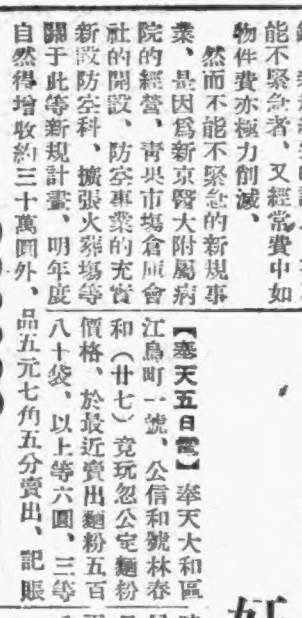 能不緊急者、又經常費中如
物件費亦極力削減、
然而不能不緊急的新規事
業、是因爲新京醫大附屬病
院的經營、靑果市場倉庫會
社的開設、防空事業的充實
新設防空科、擴張火葬場等
關于此等新規計畫、明年度
自然得增收約三十萬圓外、
【奉天五日電】奉天大和區
江島町一號、公信和號林春
和（廿七）竟玩忽公定麵粉
價格、於最近賣出麵粉五百
八十袋、以上等六圓、三等
品五元七角五分賣出、記賬